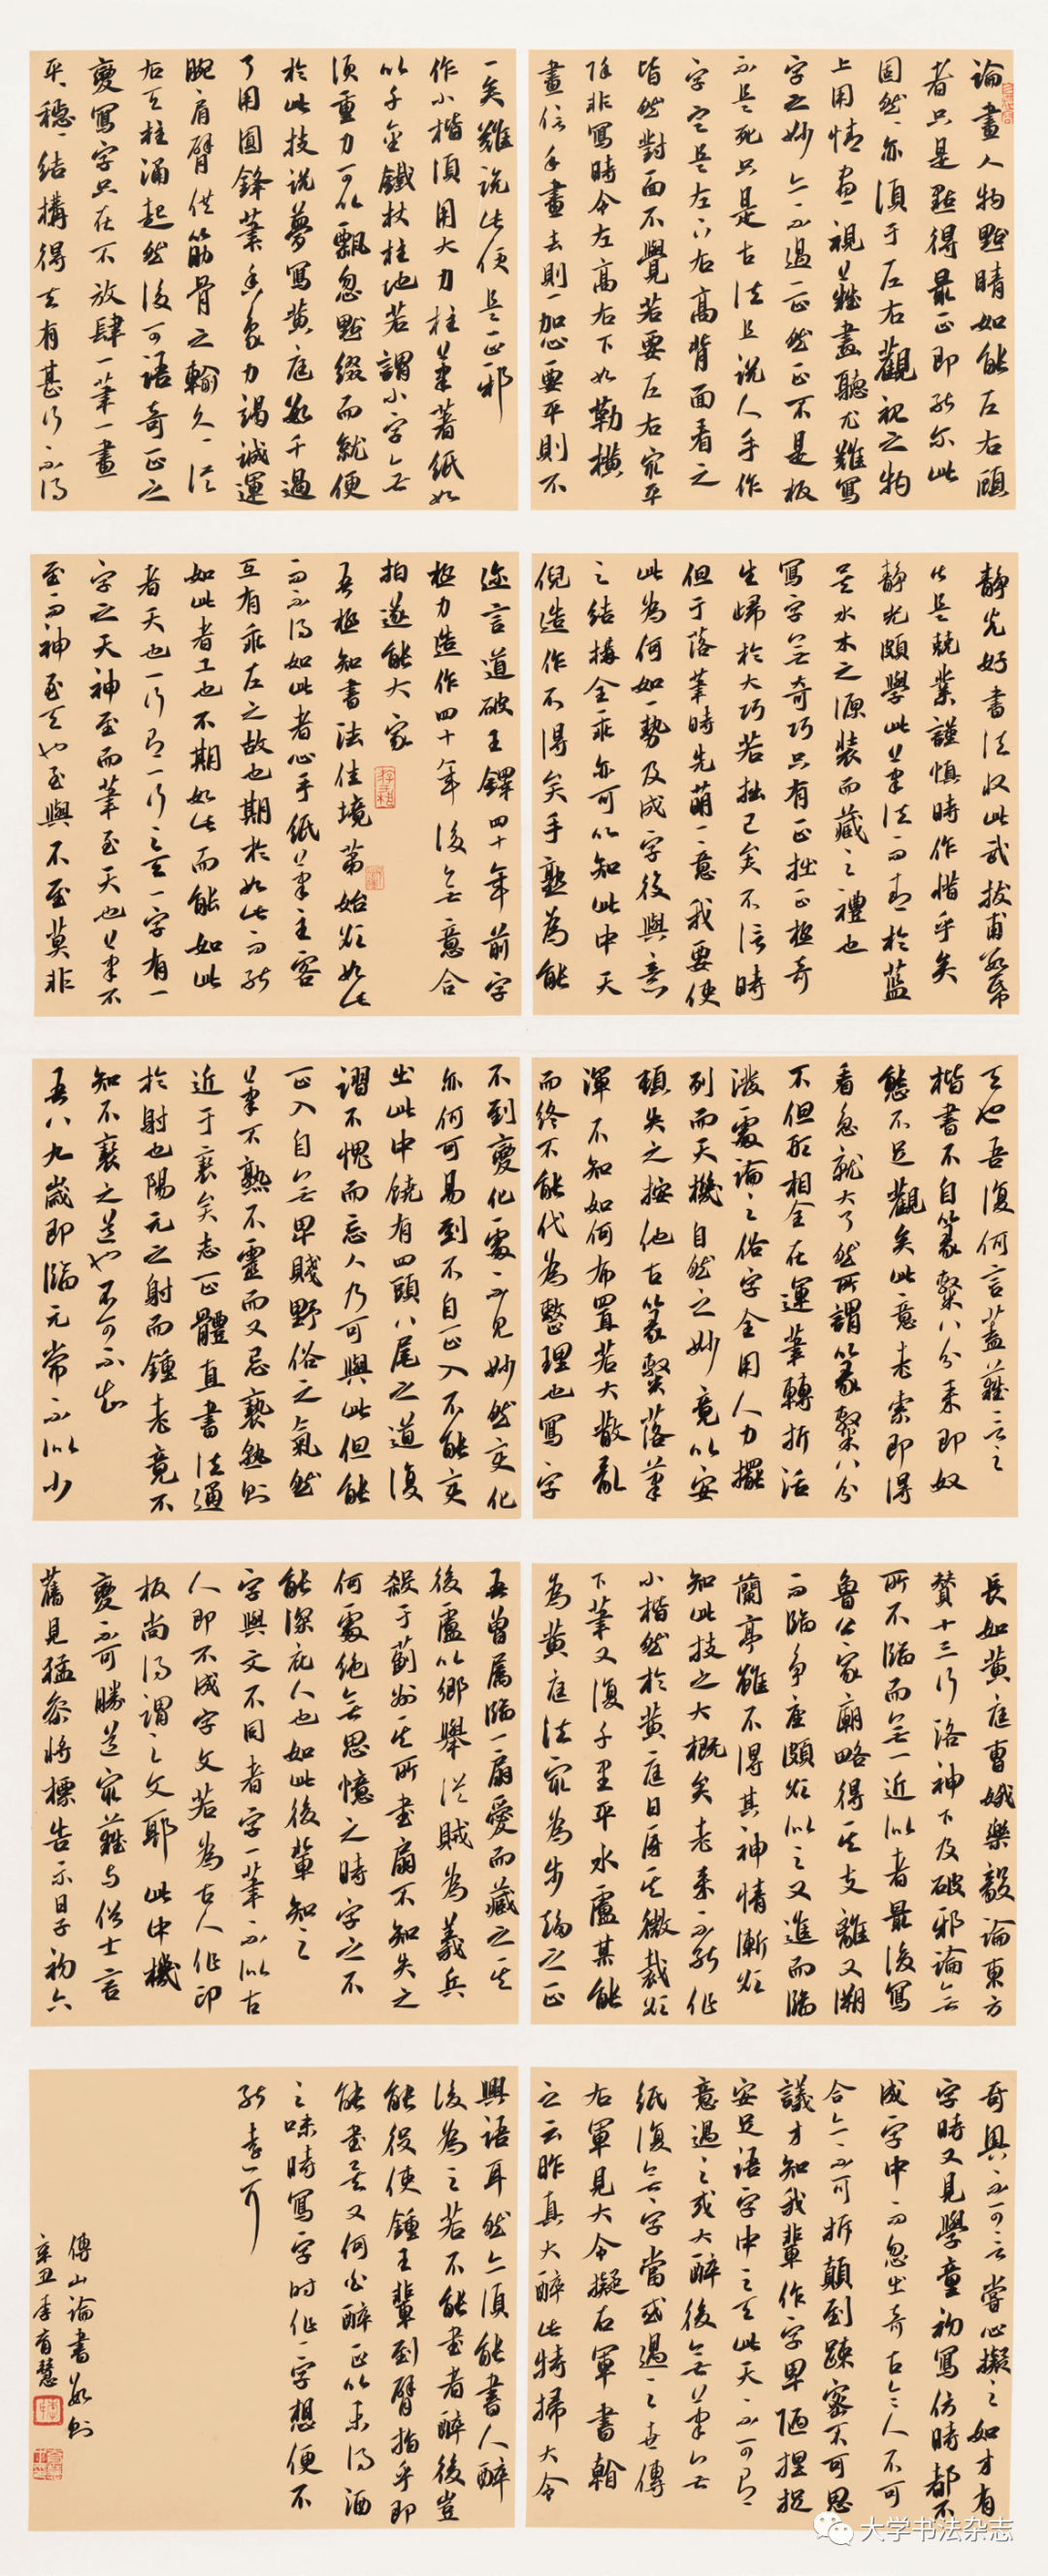 論畫人物點睛如能左右頤
者只是點得最正即能尔此
固然亦須于左右觀視之物
上用情盡視難畫聽尤難寫
字之妙亦不過一正然正不是板
不是死只是古法且說人手作
字定是左下右高背面看之
皆然對面不覺若要左右最平
除非寫時令左高右下如勒橫
畫信手畫去則一加心要平則不
一矣難說此便是正耶
作小楷須用大力柱筆著紙如
以千金鐵杖柱地若謂小字無
須重力可以飄忽點綴而就便
於此技說夢寫黃庭數千過
了用圓鋒筆香象力竭誠運
腕肩臂供筋骨之輸久久從
右天柱涌起然後可語奇正之
變寫字只在不放肆一筆一畫
平平穩穩結構得去有甚行不得
靜光好書法收此武拔甫數幕
此是兢業謹慎時作惜乎矣
靜光頗學此筆法而青於藍
是水木之源裝而藏之禮也
寫字無奇巧只有正拙正極奇
生歸於大巧若拙已矣不信時
但于落筆時先萌一意我要使
此為何如一勢及成字後與意
之結構全乖亦可以知此中天
倪造作不得矣手熟為能
迩言道破王鐸四十年前字
極力造作四十年後無意合
拍遂能大家
吾極知書法佳境第始欲如此
而不得如此者心手紙筆主客
互有乖左之故也期於如此而能
如此者工也不期如此而能如此
者天也一行有一行之天一字有一
字之天神至而筆至天也筆不
至而神至天也至與不至莫非
天也吾復何言蓋難言之
楷書不自篆隸八分來即奴
態不足觀矣此意老索即得
看急就大了然所謂篆隸八分
不但形相全在運筆轉折活
潑處論之俗字全用人力擺
列而天機自然之妙竟以安
頓失之按他古篆隸落筆
渾不知如何布置若大散亂
而終不能代為整理也寫字
不到變化處不見妙然变化
亦何可易到不自正入不能变
出此中饒有四頭八尾之道復
謂不愧而忘人乃可與此但能
正入自無卑賤野俗之氣然
筆不熟不靈而又忌褻熟則
近于褻矣志正體直書法通
於射也陽元之射而鍾老竟不
知不褻之道也不可不知
吾八九歲即臨元常不似少
長如黃庭曹娥樂毅論東方
贊十三行洛神下及破邪論無
所不臨而無一近似者最後寫
魯公家廟略得其支離又溯
而臨爭座頗欲似之又進而臨
蘭亭雖不得其神情漸欲
知此技之大概矣老來不能作
小楷然於黃庭日厪其微裁欲
下筆又復千里平水盧某能
為黃庭法最為步趨之正
吾曾厲臨一扇愛而藏之其
後盧以鄉舉從賊為義兵
殺于薊州其所書扇不知失之
何處絶無思憶之時字之不
能深庇人也如此後輩知之
字與文不同者字一筆不似古
人即不成字文若為古人作印
板尚得謂之文耶此中機
變不可勝道最難與俗士言
舊見猛參將標告示日子初六
奇奥不可言嘗心擬之如才有
字時又見學童初寫仿時都不
成字中而忽出奇古令人不可
合亦不可拆顛倒疎密不可思
議才知我輩作字卑陋捏捉
安足語字中之天此天不可有
意遇之或大醉後無筆無
紙復無字當或遇之世傳
右軍見大令擬右軍書翰
之云昨真大醉此特掃大令
興語耳然亦須能書人醉
後為之若不能書者醉後豈
能役使鍾王輩到臂指乎即
能書矣又何必醉正以未得酒
之味時寫字時作一字想便不
能耳
傅山論書數則
辛丑李育慧
大学书法杂志